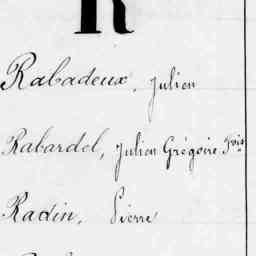 R
Rabadeux, Julien
Rabardel, Julien Grégoire Fois
Radin, Pierre